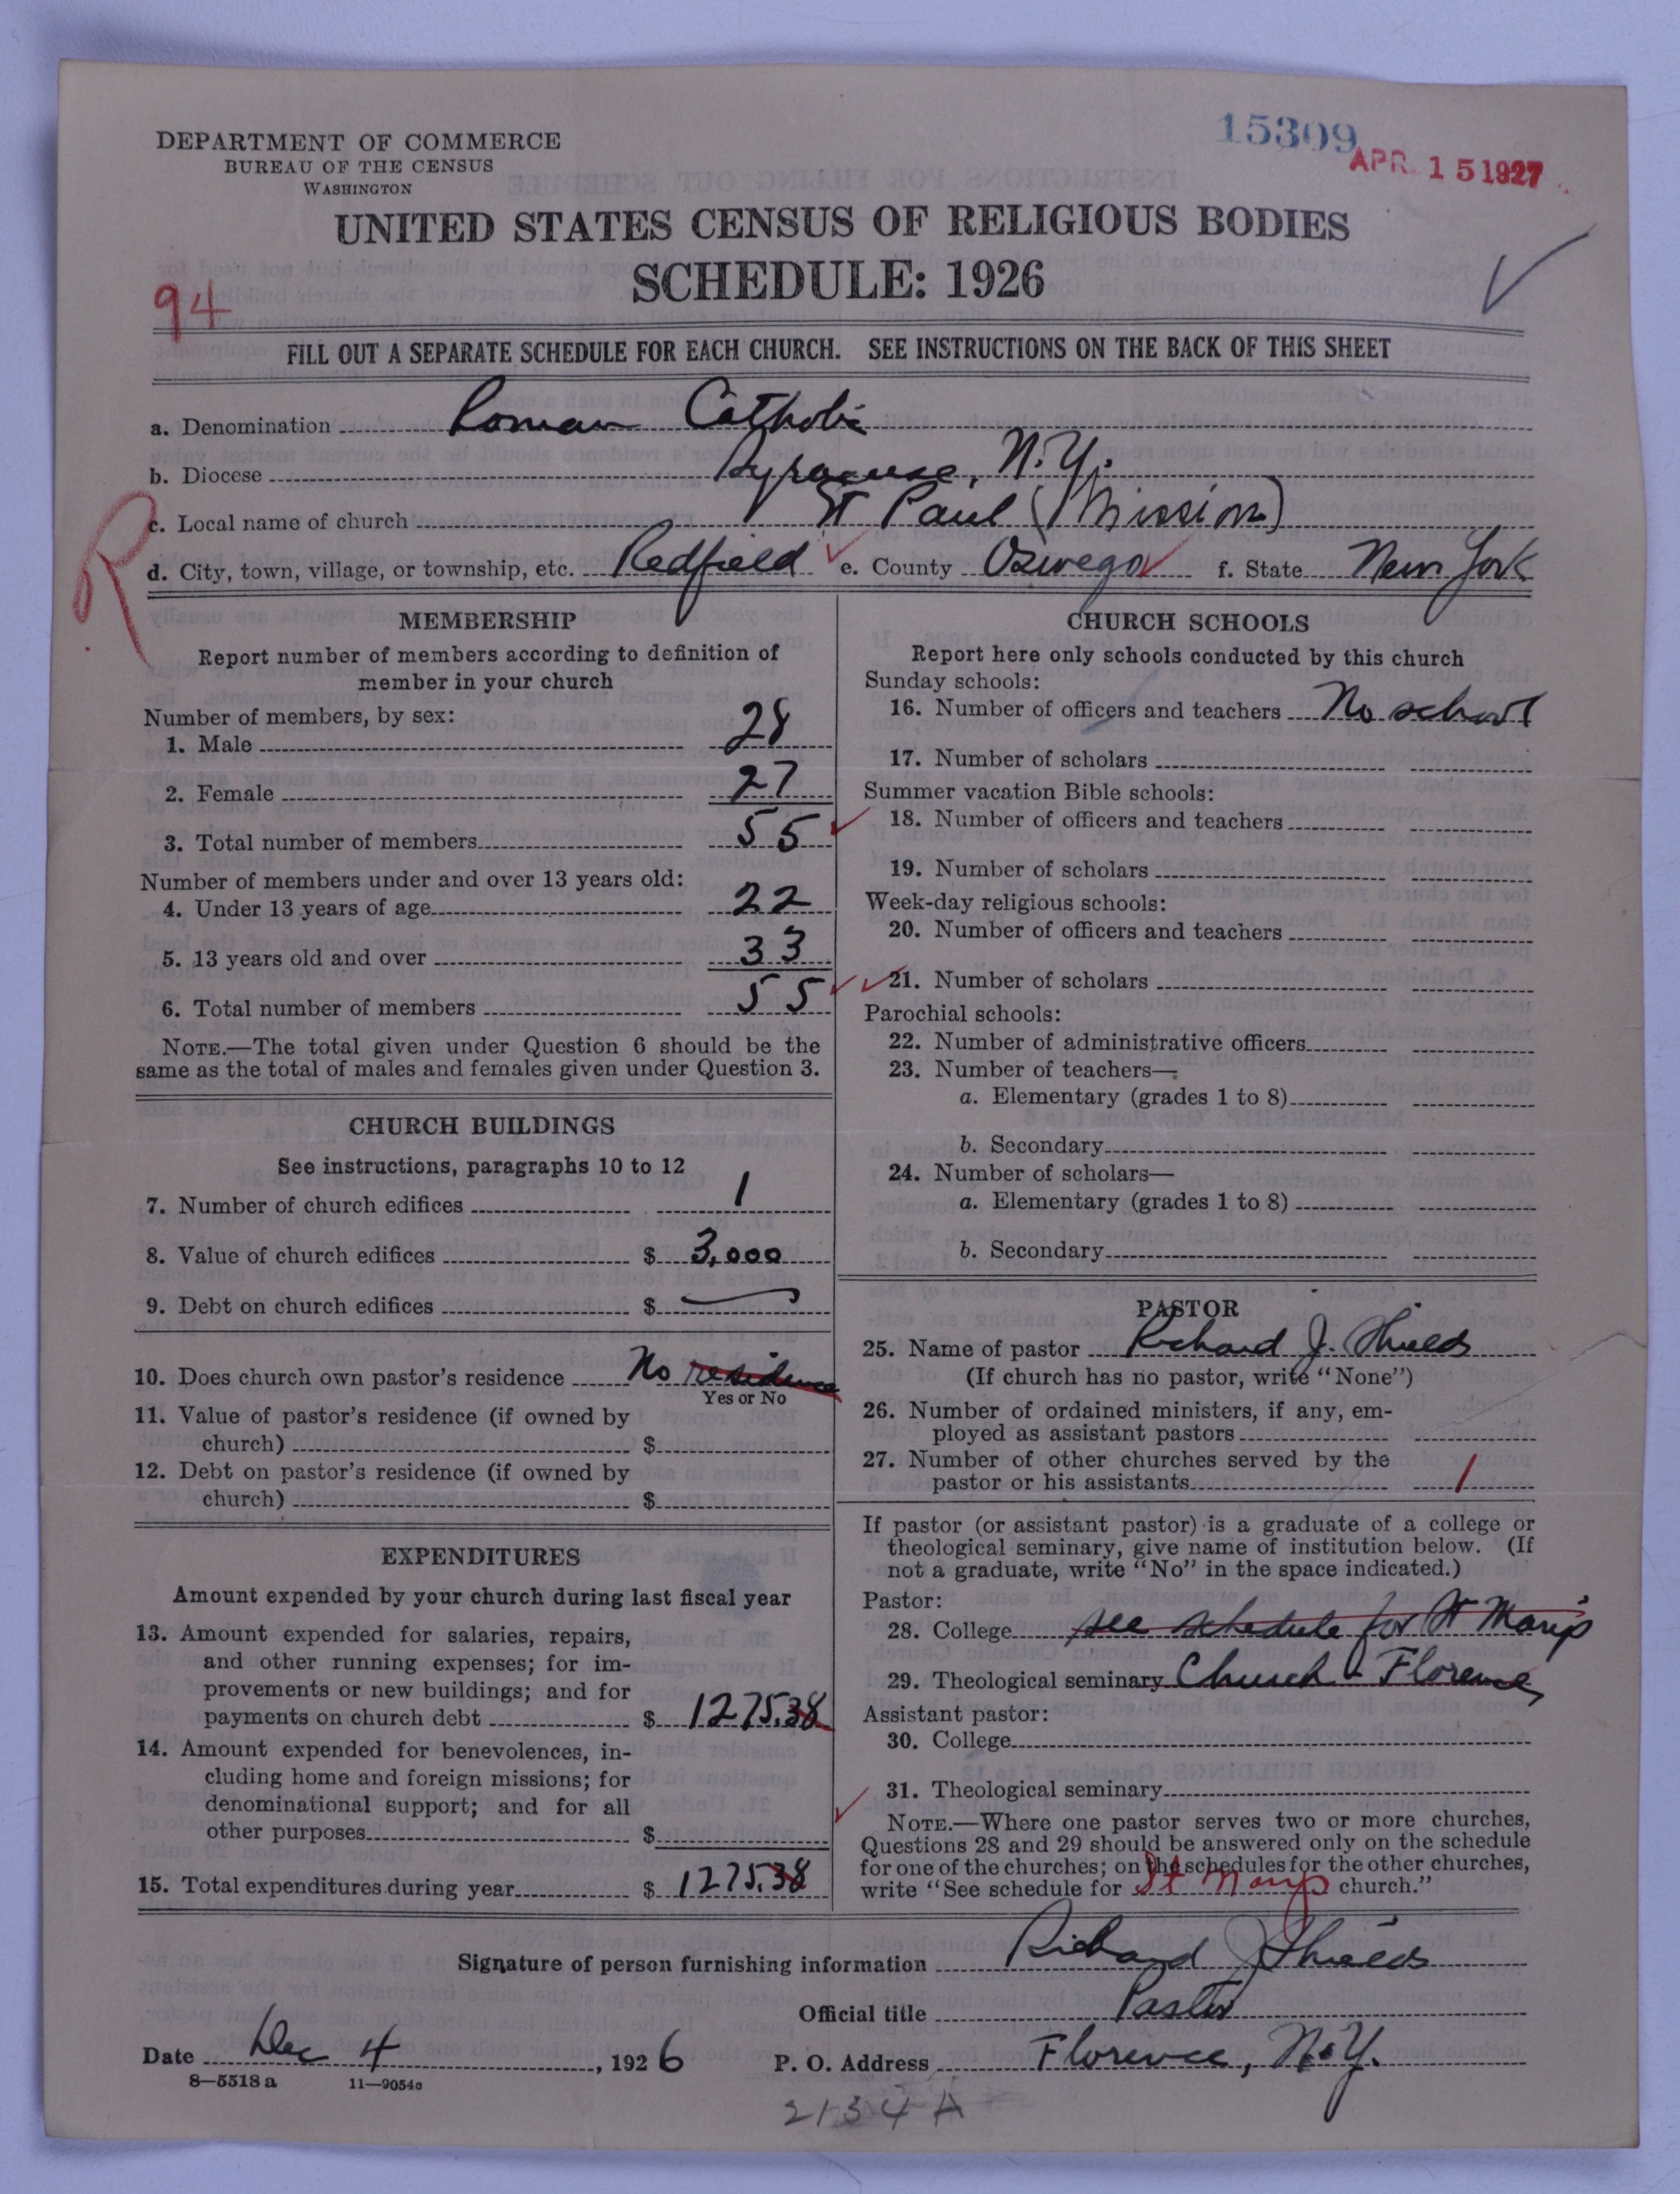 15309
APR 15 1927
DEPARTMENT OF COMMERCE
BUREAU OF THE CENSUS
WASHINGTON
UNITED STATES CENSUS OF RELIGIOUS BODIES
SCHEDULE: 1926
94
FILL OUT A SEPARATE SCHEDULE FOR EACH CHURCH. SEE INSTRUCTIONS ON THE BACK OF THIS SHEET
a. Denomination Roman Catholic
b. Diocese Syracuse, N.Y.
R
c. Local name of church St Paul (Mission)
d. City, town, village, or township, etc. Redfield e. County Oswego f. State New York
MEMBERSHIP
Report number of members according to definition of
member in your church
Number of members, by sex:
1. Male 28
2. Female 27
3. Total number of members 55
Number of members under and over 13 years old:
4. Under 13 years of age 22
5. 13 years old and over 33
6. Total number of members 55
NOTE.—The total given under Question 6 should be the
same as the total of males and females given under Question 3.
CHURCH BUILDINGS
See instructions, paragraphs 10 to 12
7. Number of church edifices 1
8. Value of church edifices $ 3,000
9. Debt on church edifices $ —
10. Does church own pastor's residence No residence
Yes or No
11. Value of pastor's residence (if owned by
church) $
12. Debt on pastor's residence (if owned by
church) $
EXPENDITURES
Amount expended by your church during last fiscal year
13. Amount expended for salaries, repairs,
and other running expenses; for im-
provements or new buildings; and for
payments on church debt $ 1275.38
14. Amount expended for benevolences, in-
cluding home and foreign missions; for
denominational support; and for all
other purposes $
15. Total expenditures during year $ 1275.38
CHURCH SCHOOLS
Report here only schools conducted by this church
Sunday schools:
16. Number of officers and teachers No school
17. Number of scholars
Summer vacation Bible schools:
18. Number of officers and teachers
19. Number of scholars
Week-day religious schools:
20. Number of officers and teachers
21. Number of scholars
Parochial schools:
22. Number of administrative officers
23. Number of teachers—
a. Elementary (grades 1 to 8)
b. Secondary
24. Number of scholars—
a. Elementary (grades 1 to 8)
b. Secondary
PASTOR
25. Name of pastor Richard J. Shields
(If church has no pastor, write "None")
26. Number of ordained ministers, if any, em-
ployed as assistant pastors
27. Number of other churches served by the
pastor or his assistants 1
If pastor (or assistant pastor) is a graduate of a college or
theological seminary, give name of institution below. (If
not a graduate, write "No" in the space indicated.)
Pastor:
28. College see schedule for St Mary's
29. Theological seminary Church - Florence
Assistant pastor:
30. College
31. Theological seminary
NOTE.—Where one pastor serves two or more churches,
Questions 28 and 29 should be answered only on the schedule
for one of the churches; on the schedules for the other churches,
write "See schedule for St Mary's church."
Signature of person furnishing information Richard J Shields
Official title Pastor
Date Dec 4, 1926 P. O. Address Florence, N.Y.
8—5518 a 11—9054c
2134 A